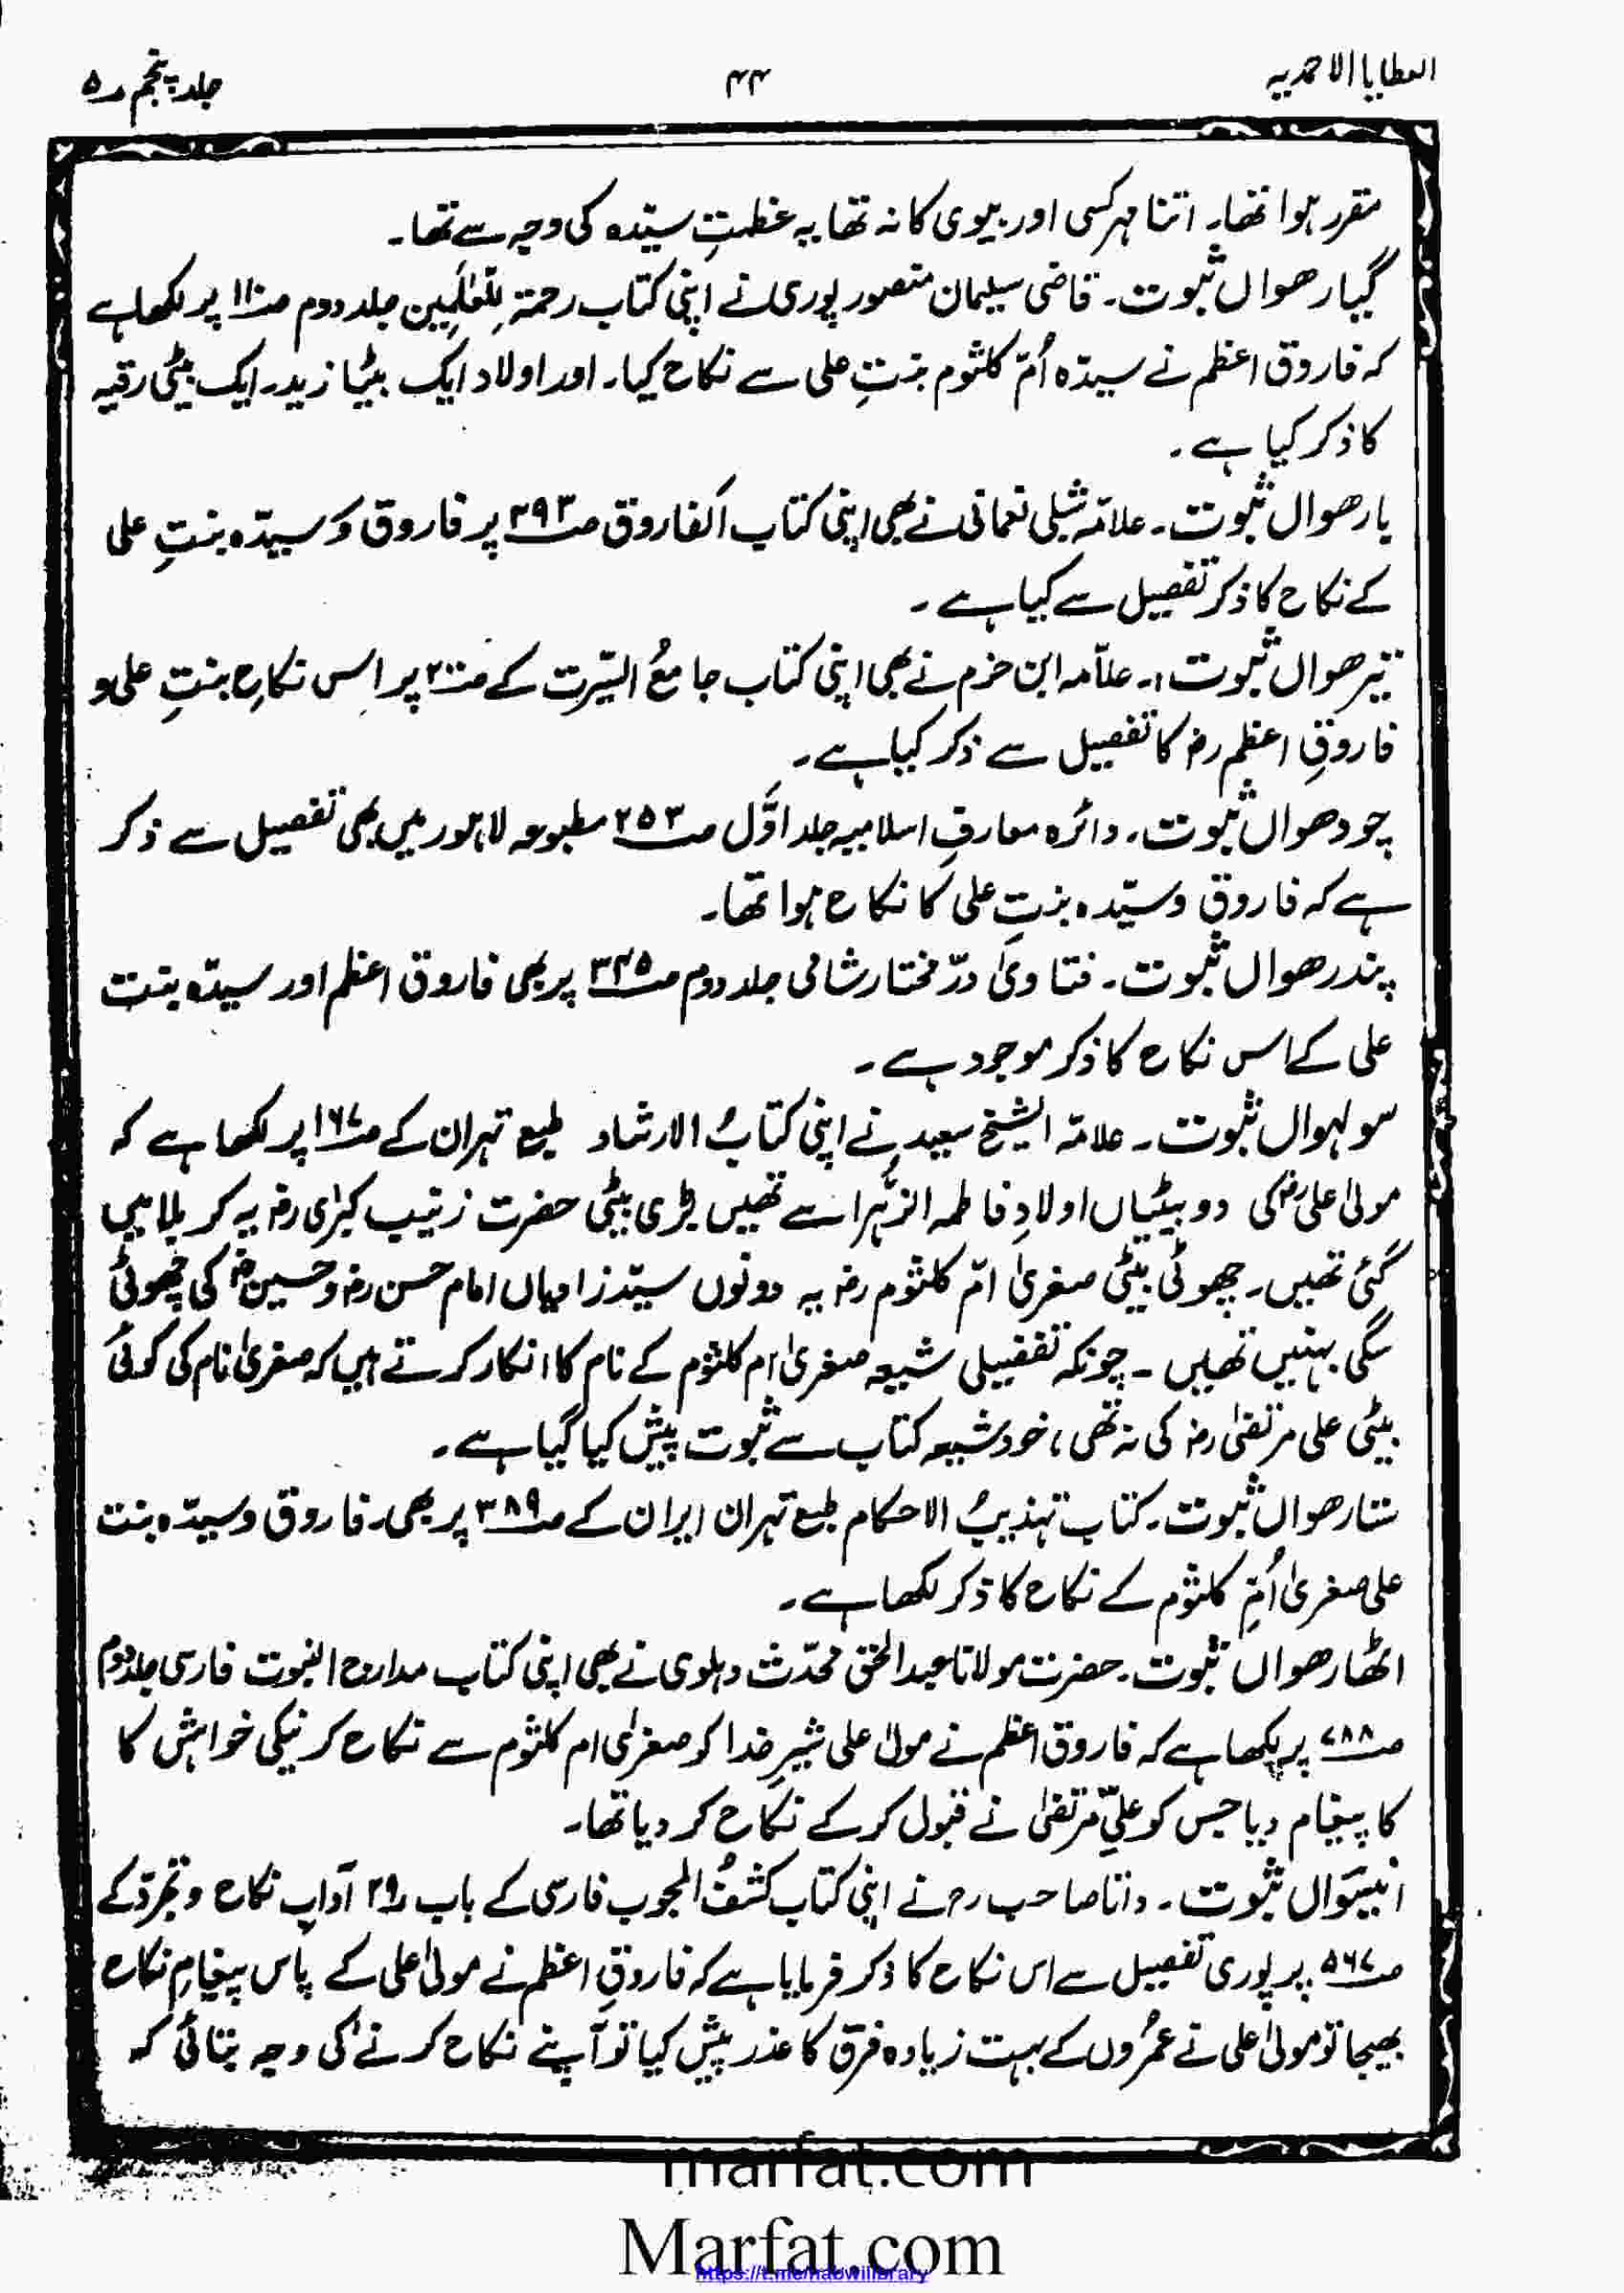 العطایا الاحمدیہ ۴۴ جلد پنجم ۵
مقرر ہوا تھا۔ اتنا مہر کسی اور بیوی کا نہ تھا یہ عظمتِ سیّدہ کی وجہ سے تھا۔
گیارھواں ثبوت۔ قاضی سلیمان منصور پوری نے اپنی کتاب رحمۃ لِلعٰلَمِین جلد دوم صـ۱۱۰ پر لکھا ہے
کہ فاروق اعظم نے سیدّہ اُمّ کلثوم بنتِ علی سے نکاح کیا۔ اور اولاد ایک بیٹا زید۔ ایک بیٹی رقیہ
کا ذکر کیا ہے۔
بارھواں ثبوت۔ علامّہ شبلی نعمانی نے بھی اپنی کتاب اَلفاروق صـ۳۹۳ پر فاروق وَ سیدّہ بنتِ علی
کے نکاح کا ذکر تفصیل سے کیا ہے۔
تیرھواں ثبوت:۔ علاّمہ ابن حزم نے بھی اپنی کتاب جامعُ السّیرت کے صـ۲ پر اِس نکاحِ بنتِ علی و
فاروقِ اعظم رضہ کا تفصیل سے ذکر کیا ہے۔
چودھواں ثبوت۔ دائرہ معارفِ اسلامیہ جلد اوَّل صـ۲۵۳ مطبوعہ لاہور میں بھی تفصیل سے ذکر
ہے کہ فاروق و سیّدہ بنتِ علی کا نکاح ہوا تھا۔
پندرھواں ثبوت۔ فتاویٰ درّ مختار شامی جلد دوم صـ۳۴۵ پر بھی فاروق اعظم اور سیدّہ بنت
علی کے اس نکاح کا ذکر موجود ہے۔
سولہواں ثبوت۔ علامّہ الشیخ سعید نے اپنی کتابُ الارشاد طبع تہران کے صـ۱۶۷ پر لکھا ہے کہ
مولیٰ علی رضہ کی دو بیٹیاں اولادِ فاطمہ الزّہرا سے تھیں بڑی بیٹی حضرت زینب کبرٰی رضہ یہ کربلا میں
گئی تھیں۔ چھوٹی بیٹی صغریٰ امّ کلثوم رضہ یہ دونوں سیّد زادیاں امام حسن رضہ و حسین رضہ کی چھوٹی
سگی بہنیں تھیں ۔ چونکہ تفضیلی شیعہ صغریٰ ام کلثوم کے نام کا انکار کرتے ہیں کہ صغریٰ نام کی کوئی
بیٹی علی مرتضٰی رضہ کی نہ تھی، خود شیعہ کتاب سے ثبوت پیش کیا گیا ہے۔
ستارھواں ثبوت۔ کتاب تہذیبُ الاحکام طبع تہران ایران کے صـ۳۸۹ پر بھی۔ فاروق و سیدّہ بنت
علی صغریٰ اُمِّ کلثوم کے نکاح کا ذکر لکھا ہے۔
اٹھارھواں ثبوت۔ حضرت مولانا عبدالحق محدّث دہلوی نے بھی اپنی کتاب مدارج النبوت فارسی جلد دوم
صـ۷۸۸ پر لکھا ہے کہ فاروق اعظم نے مولٰی علی شیرِ خدا کو صغریٰ ام کلثوم سے نکاح کرنیکی خواہش کا
کا پیغام دیا جس کو علیِّ مرتضٰی نے قبول کر کے نکاح کر دیا تھا۔
انیسَواں ثبوت۔ داتا صاحب رح نے اپنی کتاب کشفُ المحجوب فارسی کے باب ۲۹ آداب نکاح و تجرّد کے
صـ۵۶۷ پر پوری تفصیل سے اس نکاح کا ذکر فرمایا ہے کہ فاروقِ اعظم نے مولیٰ علی کے پاس پیغامِ نکاح
بھیجا تو مولیٰ علی نے عمُروں کے بہت زیادہ فرق کا عذر پیش کیا تو آپنے نکاح کرنے کی وجہ بتائی کہ
marfat.com
Marfat.com
https://t.me/nabwilibrary